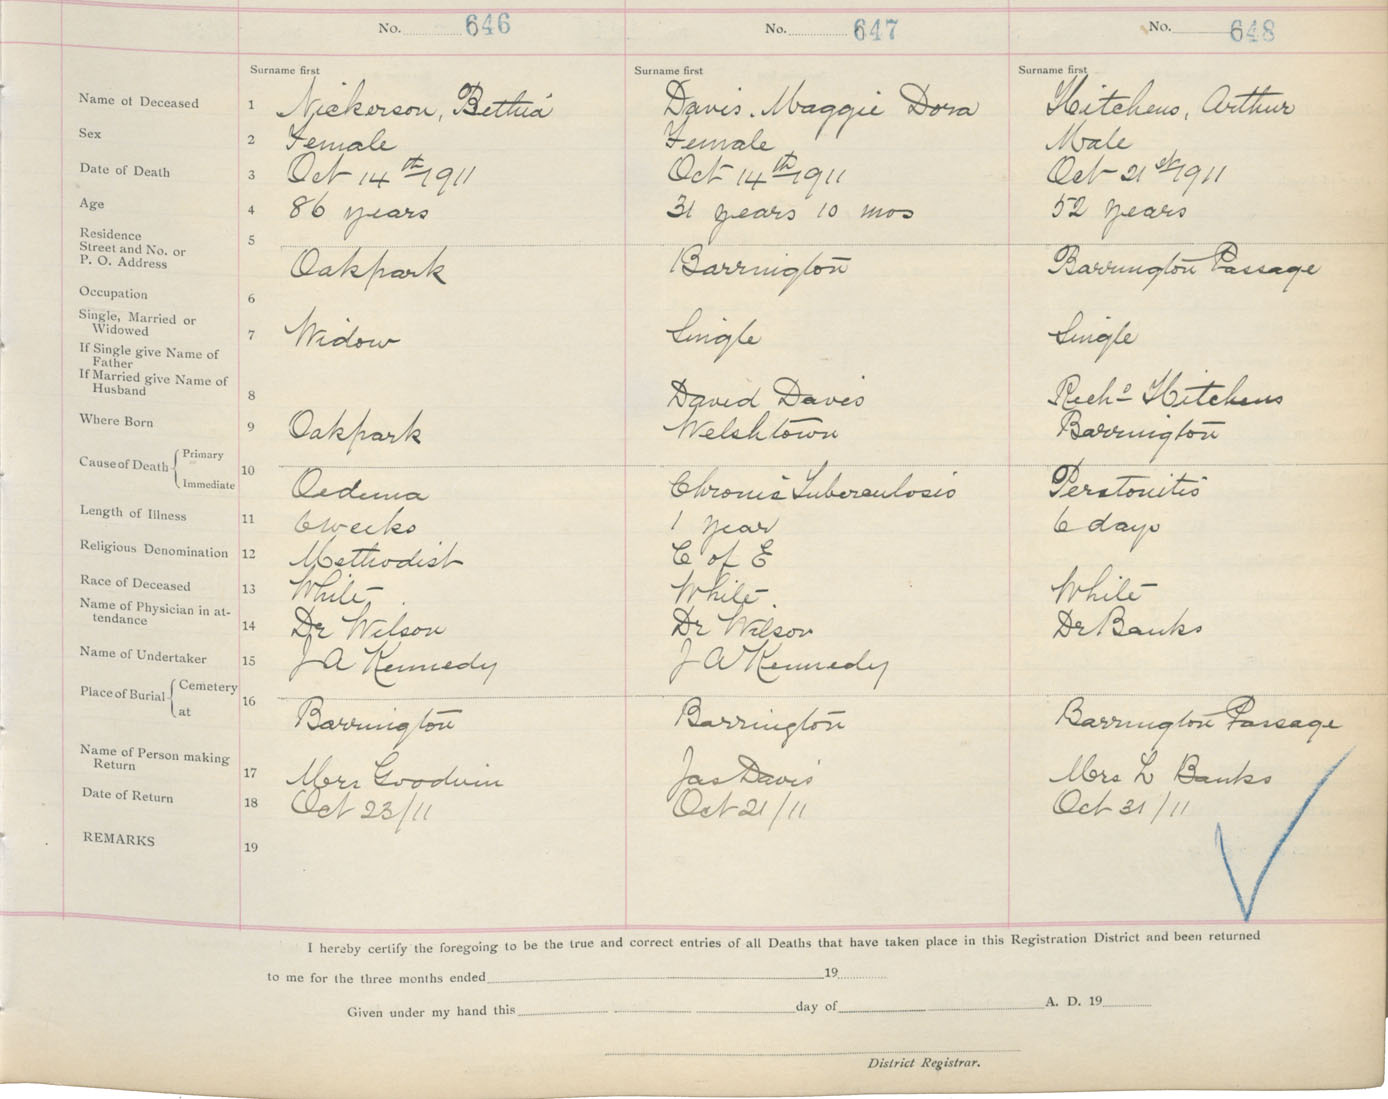 No. 646 No. 647 No. 648
Surname first Surname first Surname first
Name of Deceased 1 Nickerson, Bethia Davis. Maggie Dora Hitchens, Arthur
Sex 2 Female Female Male
Date of Death 3 Oct 14th 1911 Oct 14th 1911 Oct 21st 1911
Age 4 86 years 31 years 10 mos 52 years
Residence
Street and No. or 5
P. O. Address Oakpark Barrington Barrington Passage
Occupation 6
Single, Married or
Widowed 7 Widow Single Single
If Single give Name of
Father
If Married give Name of
Husband 8 David Davis Rechd Hitchens
Where Born 9 Oakpark Welshtown Barrington
Cause of Death Primary 10
Immediate Oedema Chronic Tuberculosis Peretonitis
Length of Illness 11 6 weeks 1 year 6 days
Religious Denomination 12 Methodist C of E
Race of Deceased 13 White White White
Name of Physician in at-
tendance 14 Dr Wilson Dr Wilson Dr Banks
Name of Undertaker 15 J A Kennedy J A Kennedy
Place of Burial Cemetery 16
at Barrington Barrington Barrington Passage
Name of Person making
Return 17 Mrs Goodwin Jas Davis Mrs L Banks
Date of Return 18 Oct 23/11 Oct 21/11 Oct 31/11
REMARKS 19
I hereby certify the foregoing to be the true and correct entries of all Deaths that have taken place in this Registration District and been returned
to me for the three months ended 19
Given under my hand this day of A. D. 19
District Registrar.